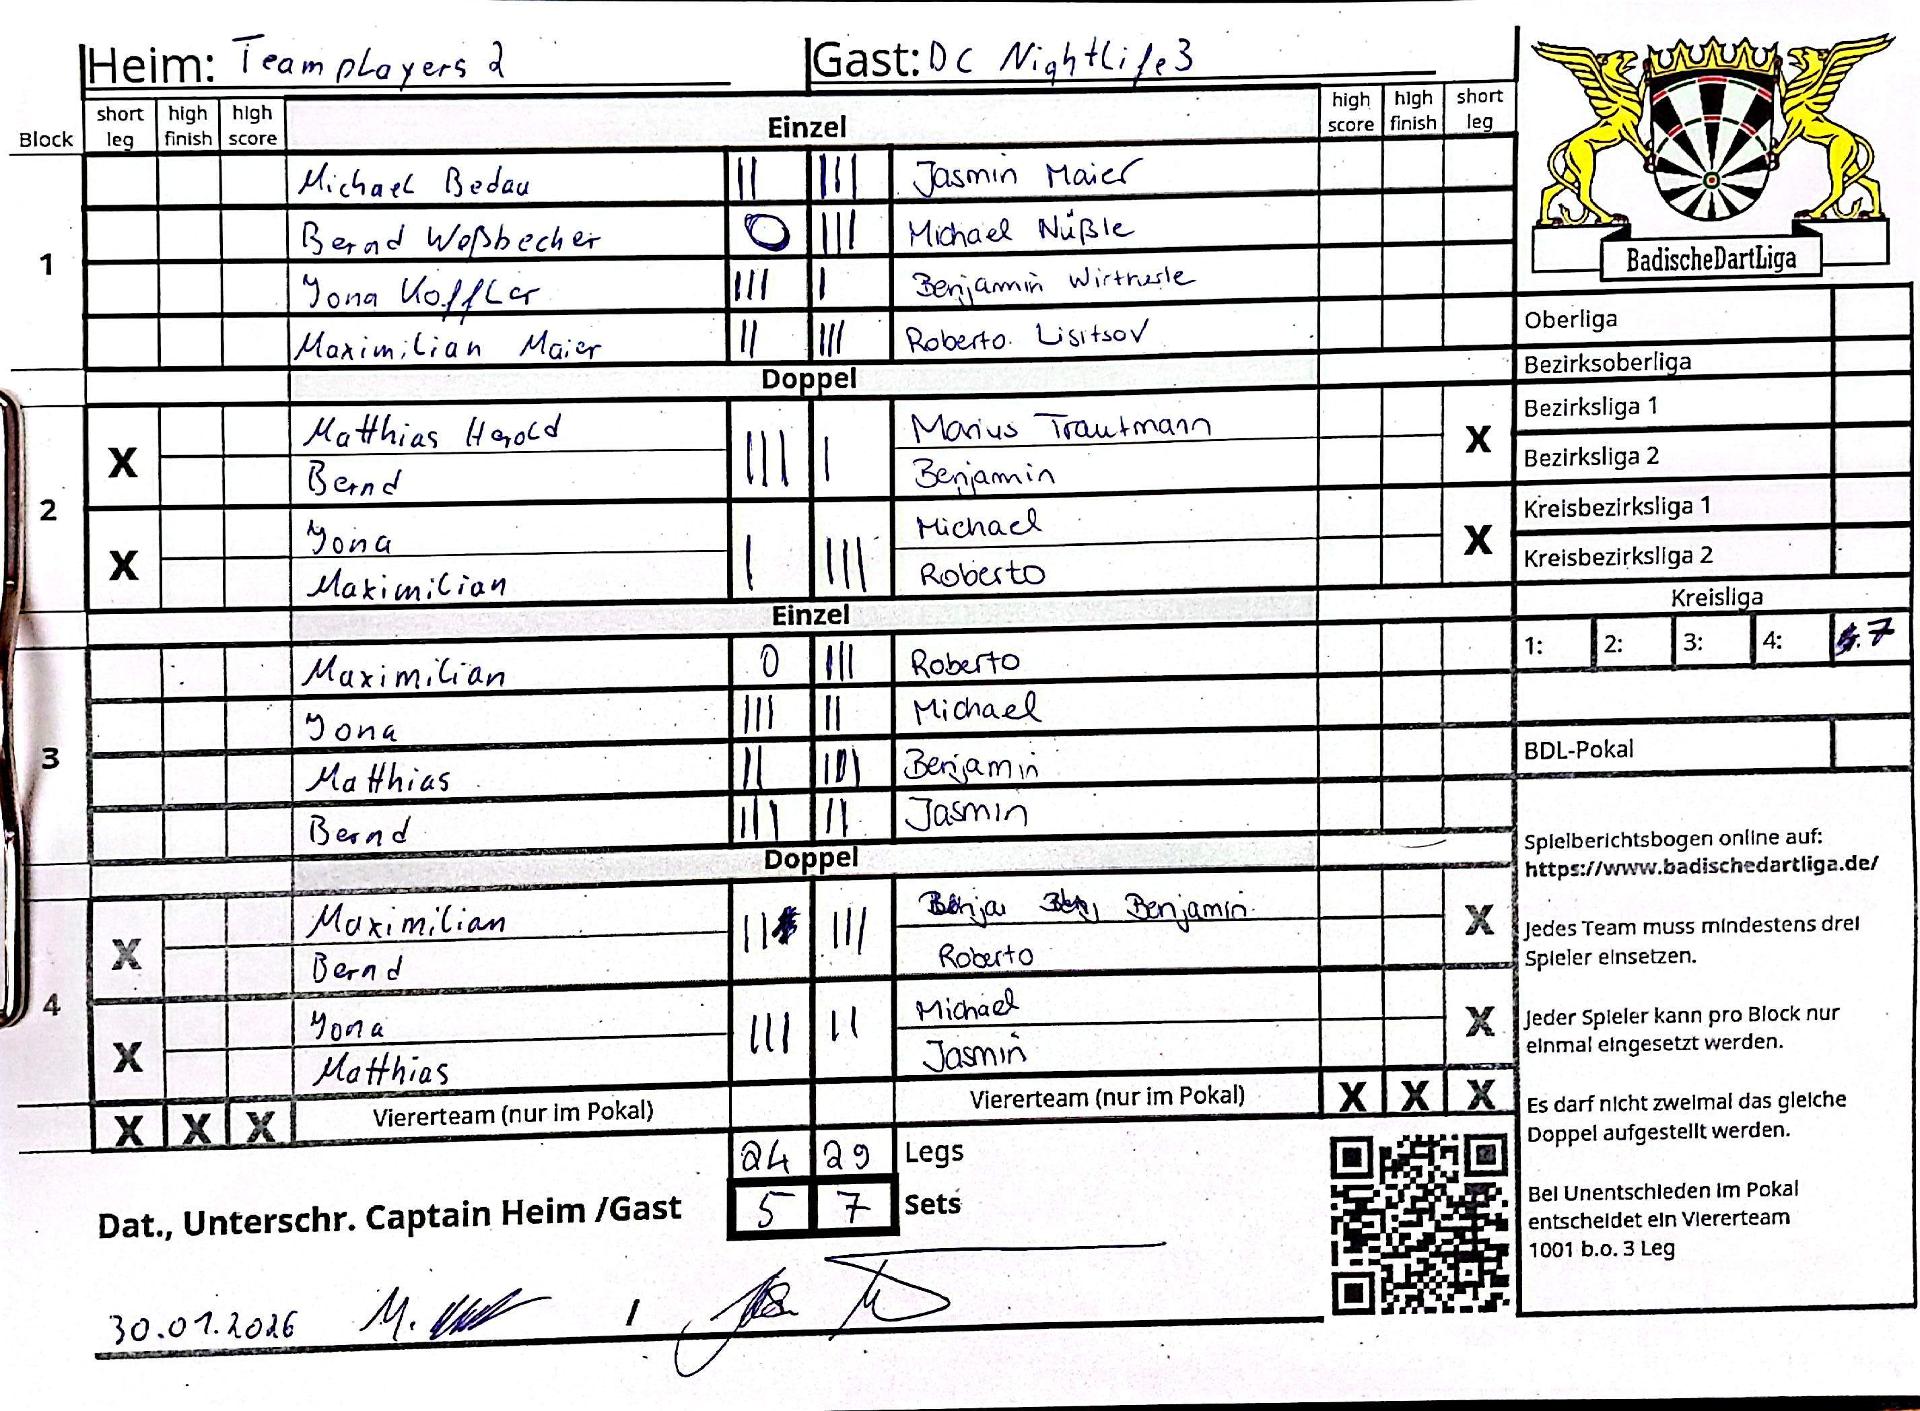 Heim: Teamplayers 2 Gast: DC Nightlife 3
Block short leg high finish high score Einzel high score high finish short leg
1
Michael Bedau II III Jasmin Maier
Bernd Weßbecher O III Michael Nüßle
Yona Koffler III I Benjamin Wirtherle
Maximilian Maier II III Roberto Lisitsov
Doppel
2
X Matthias Herold III I Marius Trautmann X
Bernd Benjamin
X Yona I III Michael X
Maximilian Roberto
Einzel
3
Maximilian 0 III Roberto
Yona III II Michael
Matthias II III Benjamin
Bernd III II Jasmin
Doppel
4
X Maximilian II III Benjamin X
Bernd Roberto
X Yona III II Michael X
Matthias Jasmin
X X X Viererteam (nur im Pokal) Viererteam (nur im Pokal) X X X
24 29 Legs
5 7 Sets
Dat., Unterschr. Captain Heim /Gast
30.01.2026 M. /
BadischeDartLiga
Oberliga
Bezirksoberliga
Bezirksliga 1
Bezirksliga 2
Kreisbezirksliga 1
Kreisbezirksliga 2
Kreisliga
1: 2: 3: 4: 7
BDL-Pokal
Spielberichtsbogen online auf:
https://www.badischedartliga.de/
Jedes Team muss mindestens drei
Spieler einsetzen.
Jeder Spieler kann pro Block nur
einmal eingesetzt werden.
Es darf nicht zweimal das gleiche
Doppel aufgestellt werden.
Bei Unentschieden im Pokal
entscheidet ein Viererteam
1001 b.o. 3 Leg